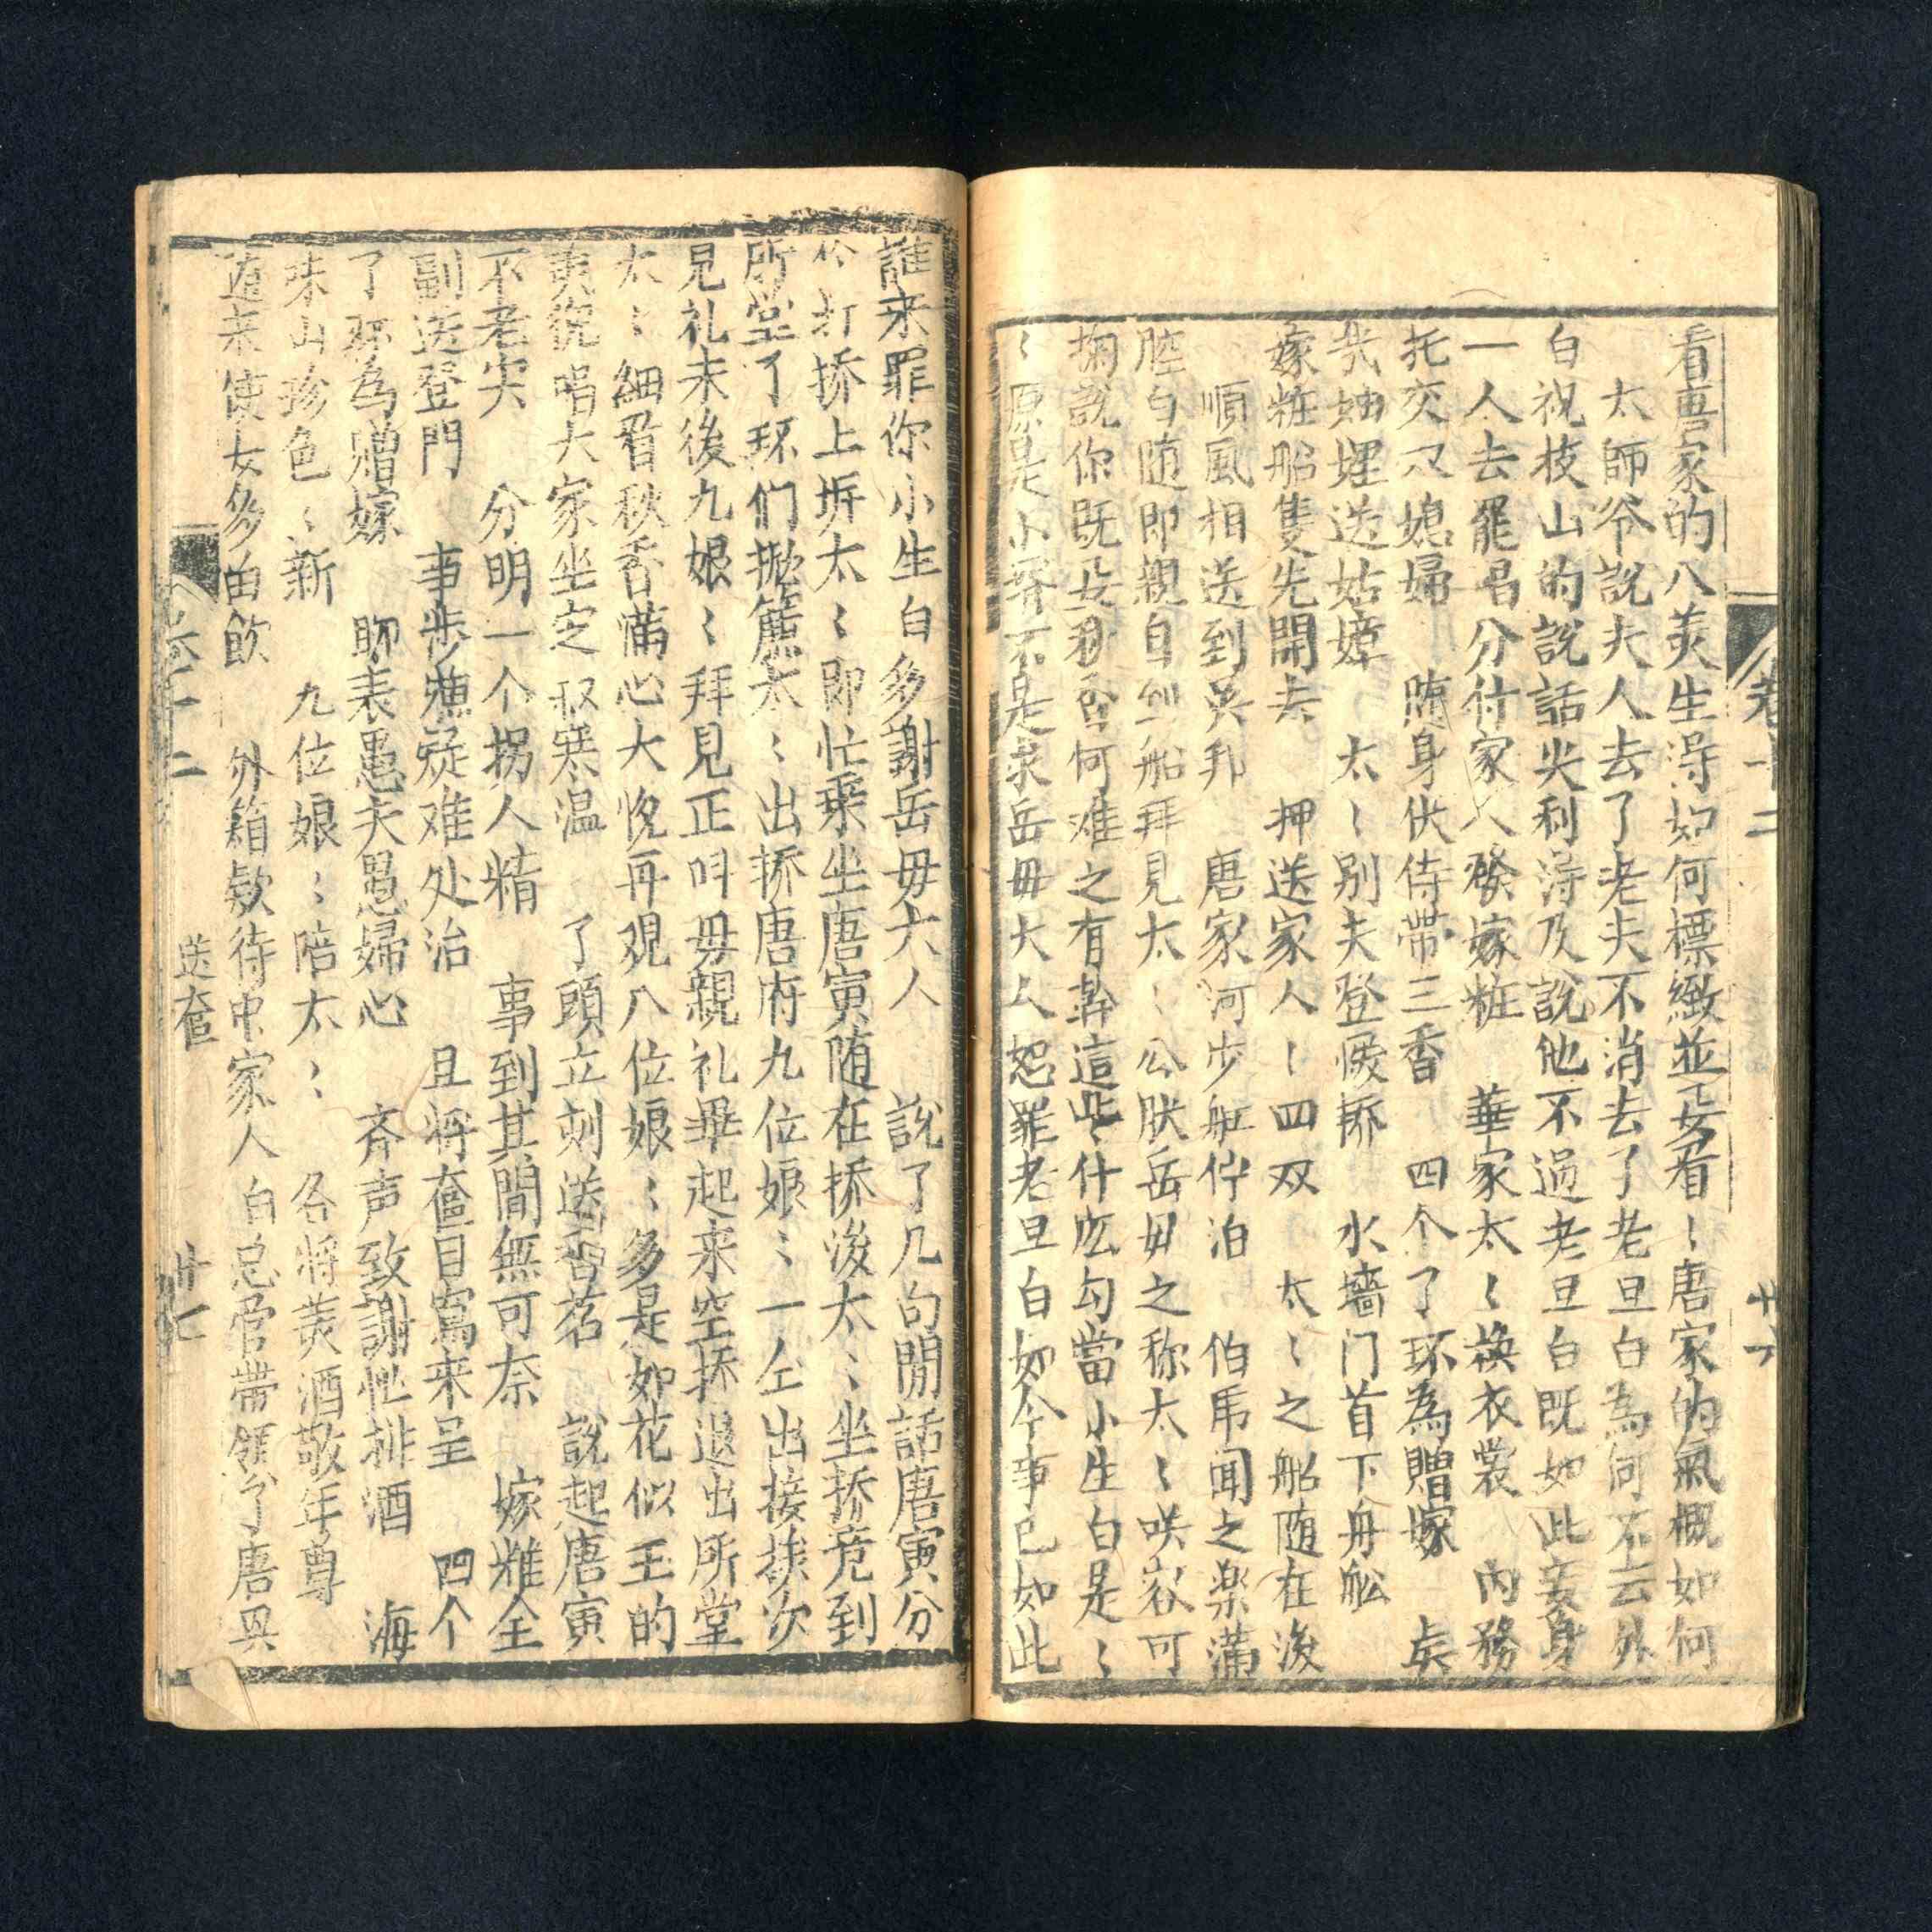 看唐家的八美生得如何標緻並要看〻唐家的氣概如何
太師爷說夫人去了老夫不消去了老旦白為何不去外
白祝枝山的說話尖利得及說他不過老旦白既如此妾身
一人去罷唱分付家人發嫁粧 華家太〻換衣裳 内務
托交媳婦 隨身伏侍帶三香 四个了环為贈嫁
妯娌送姑嫜 太〻別夫登煖轎 水墻门首下舟舩
嫁粧船隻先開去 押送家人〻四双 太〻之船随在後
順風相送到吳邦 唐家河步舡停泊 伯虎聞之楽滿
腔白随即親自到船拜見太〻公然岳母之称太〻咲容可
掬說你既要秋香何难之有幹這些什庅勾當小生白是〻
〻原是小婿不是求岳母大人恕罪老旦白如今事已如此
卷十二
廿六
誰来罪你小生白多謝岳母大人 說了几句閒話唐寅分
付打挢上坼太〻即忙乗坐唐寅随在挢後太〻坐挢竟到
所堂了环们掀簾太〻出挢唐府九位娘〻一仝出接挨次
見礼末後九娘〻拜見正叫母親礼畢起来空挢退出所堂
太〻細看秋香滿心大悅再观八位娘〻多是如花似玉的
唱大家坐定叙寒温 了頭立刻送香茗 說起唐寅
不老实 分明一个拐人精 事到其間無可奈 嫁雅全
副送登門 事步難处治 且将奩目寫来呈 四个
了环為贈嫁 聊表愚夫愚婦心 斉声致謝忙排酒 海
味山珍色〻新 九位娘〻陪太〻 各将美酒敬年尊
随来使女多留飲 外箱欵待衆家人 白总管帶領了唐興
卷十二
送奩
廿七